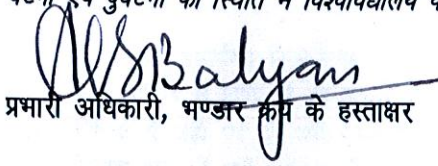 की स्थिति में विश्वविद्यालय
Balyan
प्रभारी अधिकारी, भण्डार क्रय के हस्ताक्षर